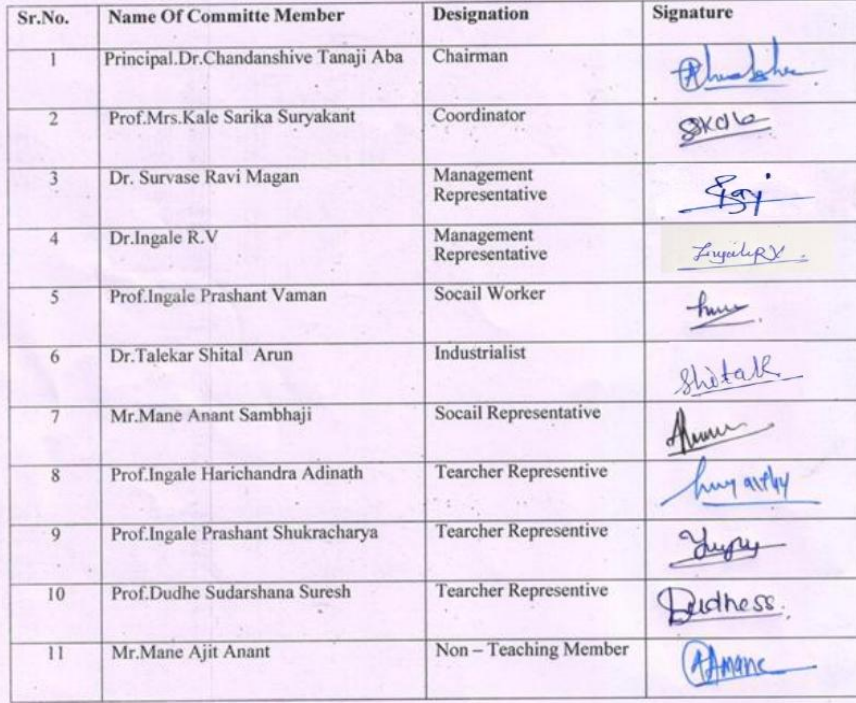 Sr.No. Name Of Committe Member Designation Signature
1 Principal.Dr.Chandanshive Tanaji Aba Chairman
2 Prof.Mrs.Kale Sarika Suryakant Coordinator SKale
3 Dr. Survase Ravi Magan Management
Representative
4 Dr.Ingale R.V Management
Representative IngaleRV
5 Prof.Ingale Prashant Vaman Socail Worker
6 Dr.Talekar Shital Arun Industrialist Shital
7 Mr.Mane Anant Sambhaji Socail Representative
8 Prof.Ingale Harichandra Adinath Tearcher Representive
9 Prof.Ingale Prashant Shukracharya Tearcher Representive
10 Prof.Dudhe Sudarshana Suresh Tearcher Representive Dudhess.
11 Mr.Mane Ajit Anant Non – Teaching Member AAmane